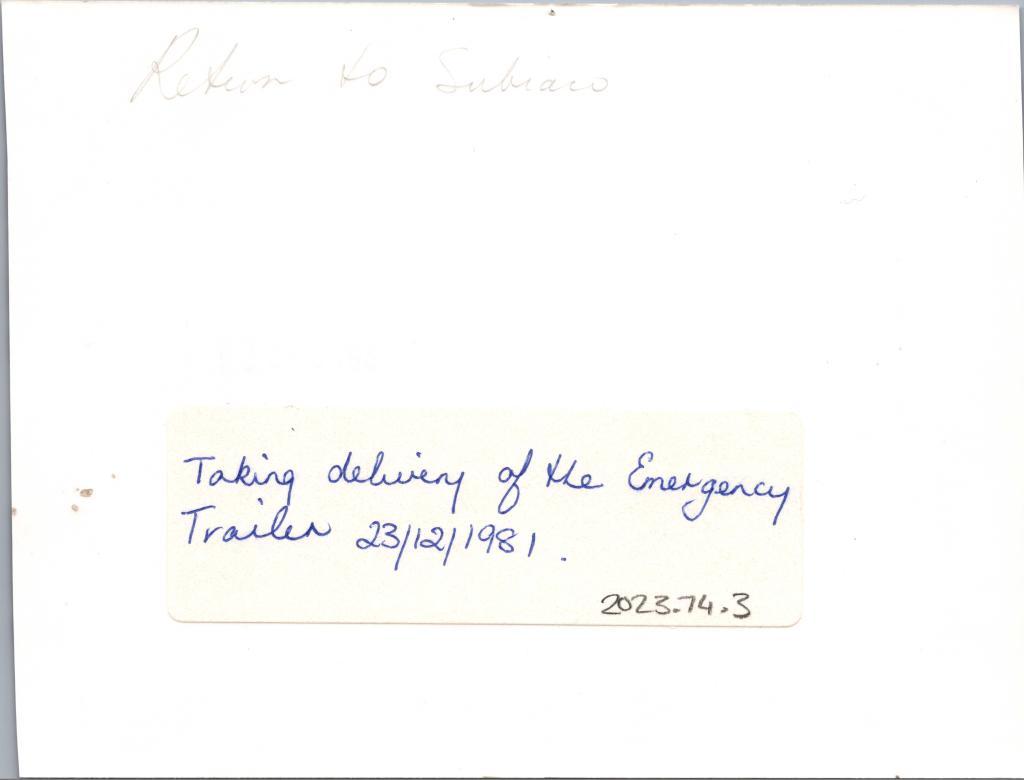 Return to Subiaco
Taking delivery of the Emergency
Trailer 23/12/1981.
2023.74.3